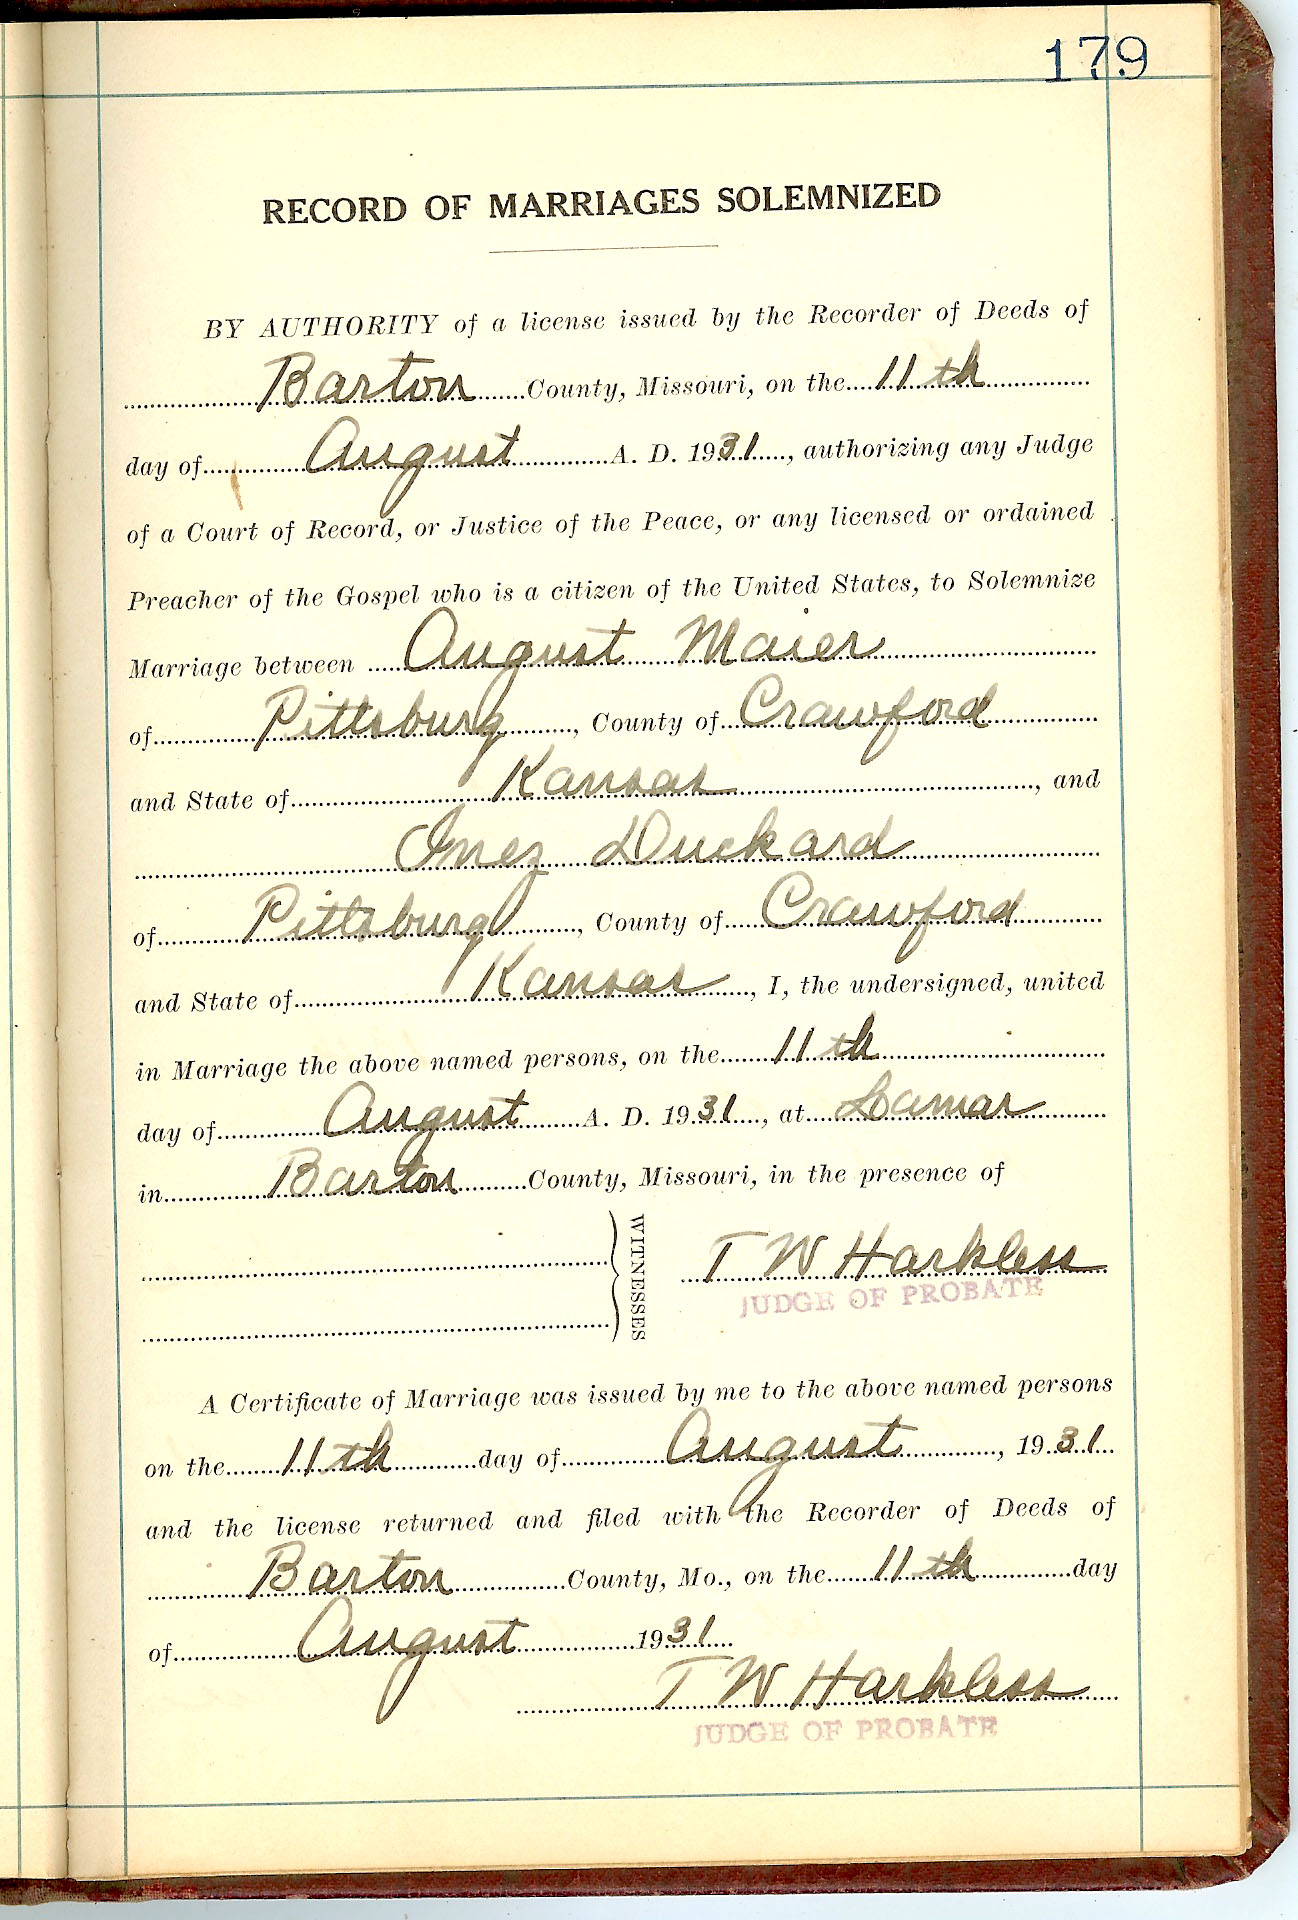 179
RECORD OF MARRIAGES SOLEMNIZED
BY AUTHORITY of a license issued by the Recorder of Deeds of
Barton County, Missouri, on the 11th
day of August A. D. 1931, authorizing any Judge
of a Court of Record, or Justice of the Peace, or any licensed or ordained
Preacher of the Gospel who is a citizen of the United States, to Solemnize
Marriage between August Maier
of Pittsburg, County of Crawford
and State of Kansas, and
Inez Duckard
of Pittsburg, County of Crawford
and State of Kansas, I, the undersigned, united
in Marriage the above named persons, on the 11th
day of August A. D. 1931, at Lamar
in Barton County, Missouri, in the presence of
WITNESSES
T W Harkless
JUDGE OF PROBATE
A Certificate of Marriage was issued by me to the above named persons
on the 11th day of August, 1931
and the license returned and filed with the Recorder of Deeds of
Barton County, Mo., on the 11th day
of August 1931
T W Harkless
JUDGE OF PROBATE